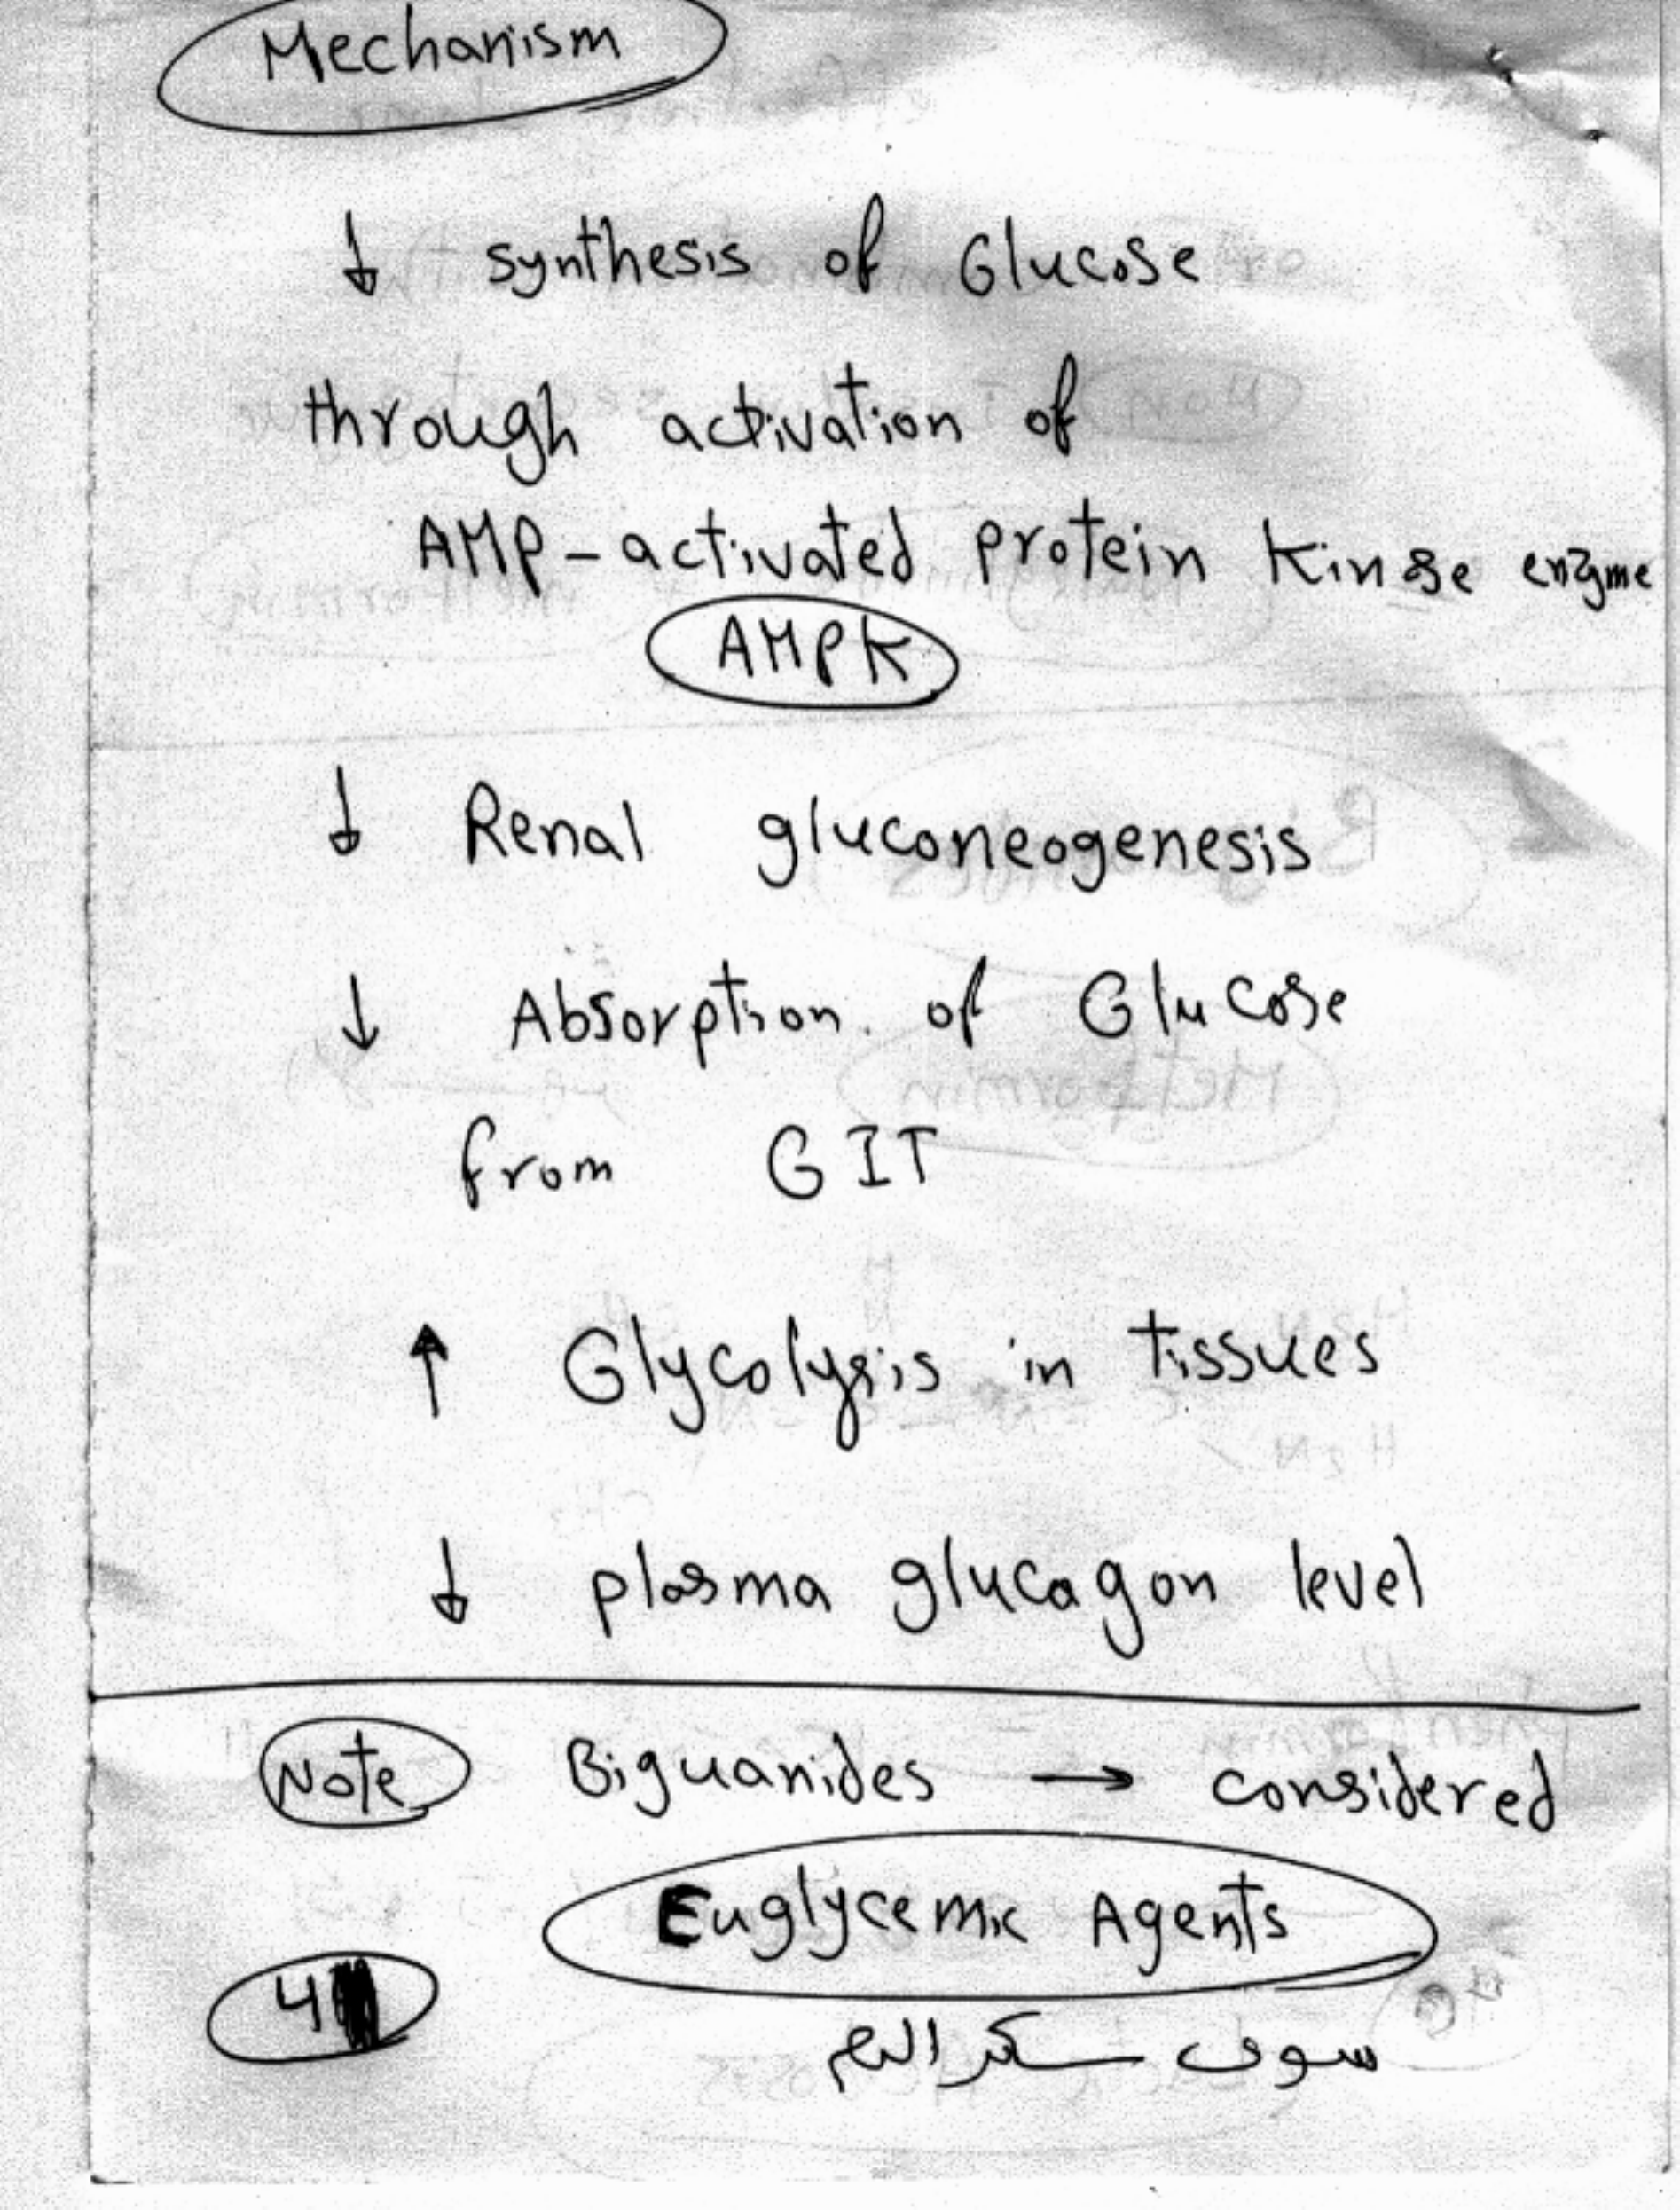 Mechanism
↓ synthesis of Glucose
through activation of
AMP-activated protein kinase enzyme
AMPK
↓ Renal gluconeogenesis
↓ Absorption of Glucose
from GIT
↑ Glycolysis in tissues
↓ plasma glucagon level
Note Biguanides → considered
Euglycemic Agents
4
سوى سكر الدم